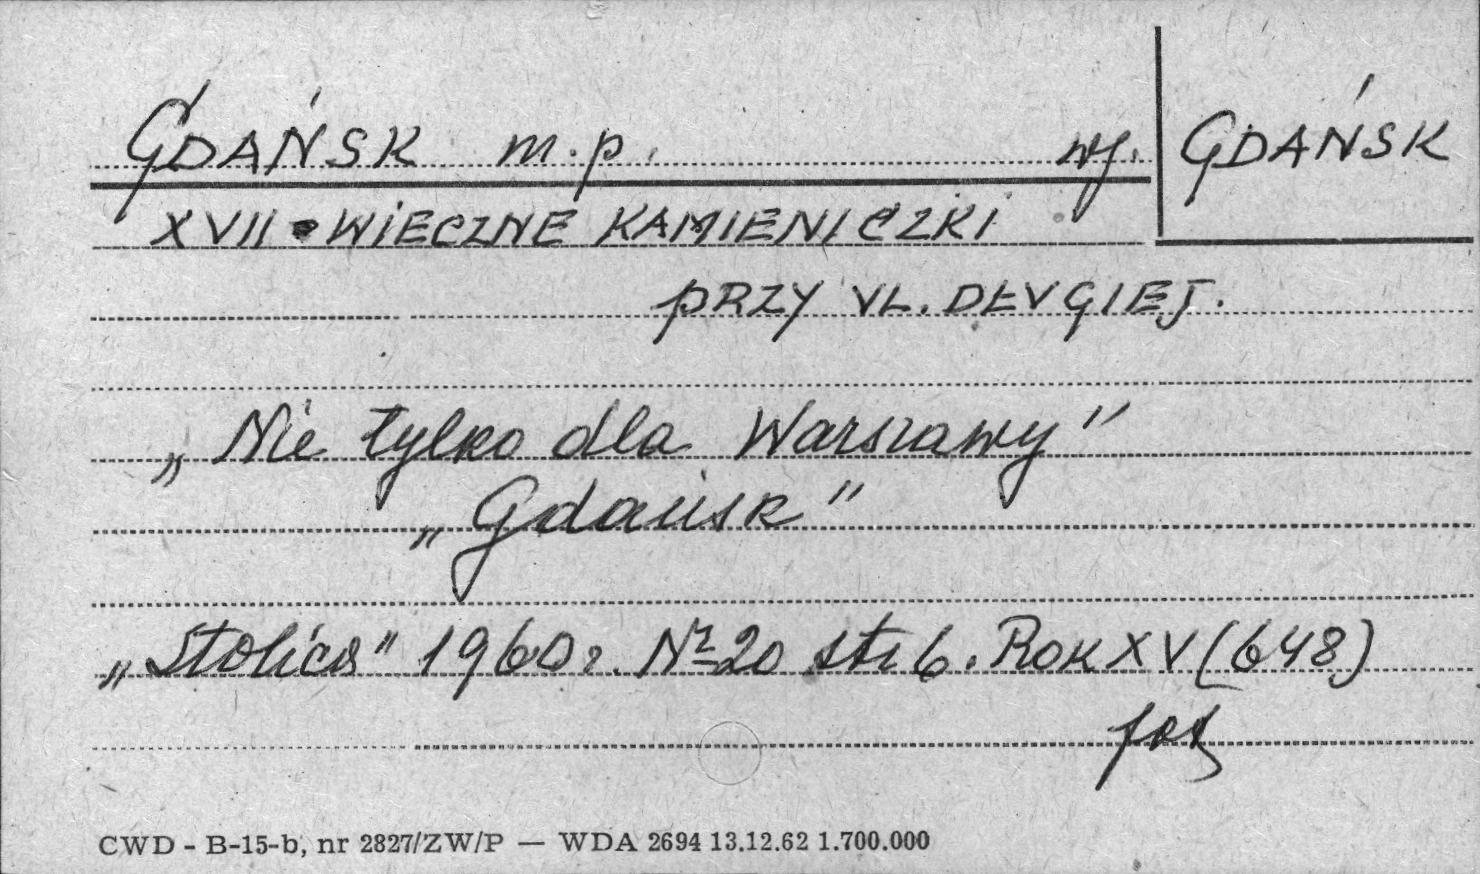 GDAŃSK m.p. wj. GDAŃSK
XVII-WIECZNE KAMIENICZKI
PRZY UL. DŁUGIEJ.
„Nie tylko dla Warszawy"
„Gdańsk"
„Stolica" 1960 r. Nr 20 str 6. Rok XV (648)
fot
CWD - B-15-b, nr 2827/ZW/P — WDA 2694 13.12.62 1.700.000